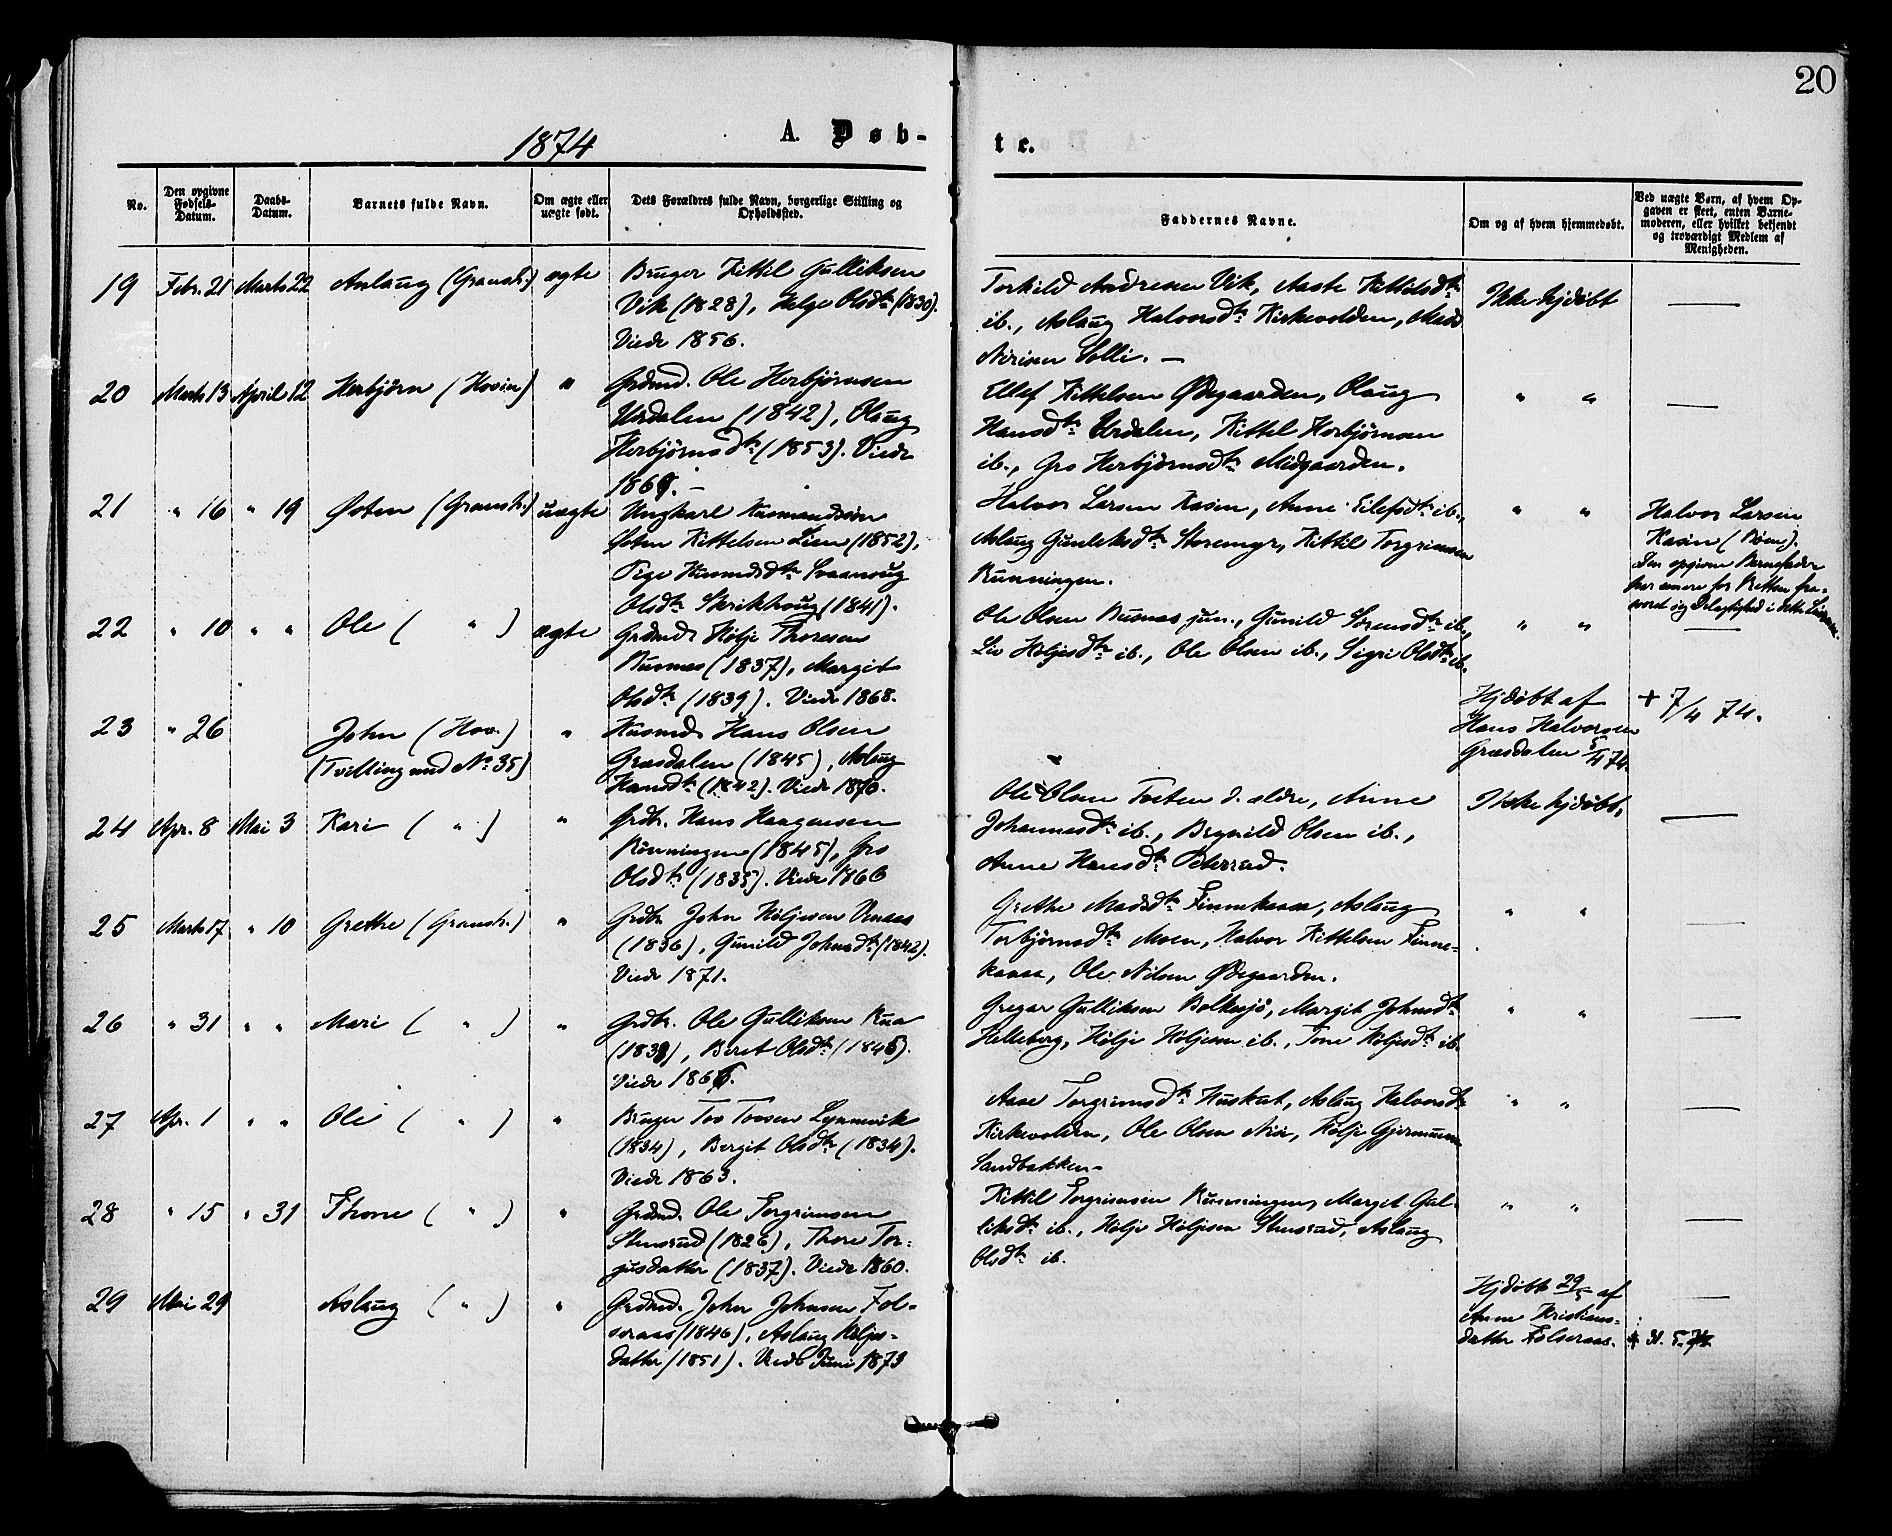 20
1874
A. Døb-
te.
No.
Den opgivne Fødsels-Datum.
Daabs-Datum.
Barnets fulde Navn.
Om ægte eller uægte født.
Dets Forældres fulde Navn, borgerlige Stilling og Opholdssted.
Faddernes Navne.
Om og af hvem hjemmedøbt.
Ved uægte Børn, af hvem Opgaven er skeet, enten Barnemoderen, eller hvilket bekjendt og troværdigt Medlem af Menigheden.
19 Febr. 21 Marts 22 Aslaug (Gransh.) ægte Bruger Kittil Gulliksen
Vik (1828), Helge Olsdtr (1830).
Viede 1856.
Torkild Andresen Vik, Aaste Kittilsdtr
ib., Aslaug Halvorsdtr Kirkevolden, Mads
Solli. —
Ikke hjdøbt —
20 Marts 13 April 12 Herbjørn (Hovin) " Grdmd. Ole Herbjørnsen
Urdalen (1842), Olaug
Herbjørnsdtr (1853). Viede
1869. —
Ellef Kittelsen Ødegaarden, Olaug
Hansdtr Urdalen, Kittel Herbjørnsen
ib., Gro Herbjørnsdtr Midgaarden.
" " —
21 " 16 " 19 Østen (Gransh.) uægte Ungkarl Husmandssøn
Østen Kittelsen Lien (1852),
Pige Husmdsdtr Svanaug
Olsdtr Skrikhaug (1841).
Halvor Larsen Kasin, Anne Eilefsdtr ib.,
Aslaug Gunleksdtr Storemyr, Kittil Torgrimsen
Runningen.
" "
Halvor Larsen
Kasin ( ).
Den opgivne Barnefader
har senere for Retten fra-
svoret sig Delagtighed i dette
22 " 10 " " Ole ( " ) ægte Grdmd. Hølje Thoresen
Busnes (1837), Margit
Olsdtr (1839). Viede 1868.
Ole Olsen Busnes jun., Gunild Sørensdtr ib.,
Liv Høljesdtr ib., Ole Olsen ib., Sigri Olsdtr ib.
" " —
23 " 26 John (Hov.)
(Tvilling med No 35) " Husmd. Hans Olsen
Grasdalen (1845), Aslaug
Hansdtr (1842). Viede 1870.
Hjdøbt af
Hans Halvorsen
Grasdalen 5/4 74.
+ 7/4 74.
24 Apr. 8 Mai 3 Kari ( " ) " Grdbr. Hans Haagensen
Rønningen (1845), Gro
Olsdtr (1835). Viede 1866
Ole Olsen Tveten d. ældre, Anne
Johannesdtr ib., Brynild Olsen ib.,
Anne Hansdtr
Ikke hjdøbt. —
25 Marts 17 " 10 Grethe (Gransh.) " Grdbr. John Høljesen Vinaas
(1836), Gunild Johnsdtr (1842).
Viede 1871.
Grethe Madsdtr Finnekaasa, Aslaug
Torbjørnsdtr Moen, Halvor Kittelsen Finne-
kaasa, Ole Nilsen Ødegaarden.
" " —
26 " 31 " " Mari ( " ) " Grdbr. Ole Gulliksen Rua
(1838), Beret Olsdtr (1846).
Viede 1866.
Gregar Gulliksen Bolkesjø, Margit Johnsdtr
Helleberg, Hølje Høljesen ib., Tone Høljesdtr ib.
" " —
27 Apr. 1 " " Ole ( " ) " Bruger Tov Tovsen Lynnevik
(1834), Bergit Olsdtr (1834).
Viede 1863.
Aase Torgrimsdtr Huskut, Aslaug Halvorsdtr
Kirkevolden, Ole Olsen , Hølje Gjermunsen
Sandbakken.
" " —
28 " 15 " 31 Thone ( " ) " Grdmd. Ole Torgrimsen
Stensrud (1826), Thore Tor-
jusdatter (1837). Viede 1860.
Kittil Torgrimsen Runningen, Margit Gul-
liksdtr ib., Hølje Høljesen Stensrud, Aslaug
Olsdtr ib.
" " —
29 Mai 29 Aslaug ( " ) " Grdmd. John Johnsen Fol-
seraas (1846), Aslaug Høljes-
datter (1851). Viede Juni 1873
Hjdøbt 29/5 af
Anne Kristians-
datter Folseraas.
—
+ 31. 5. 74.